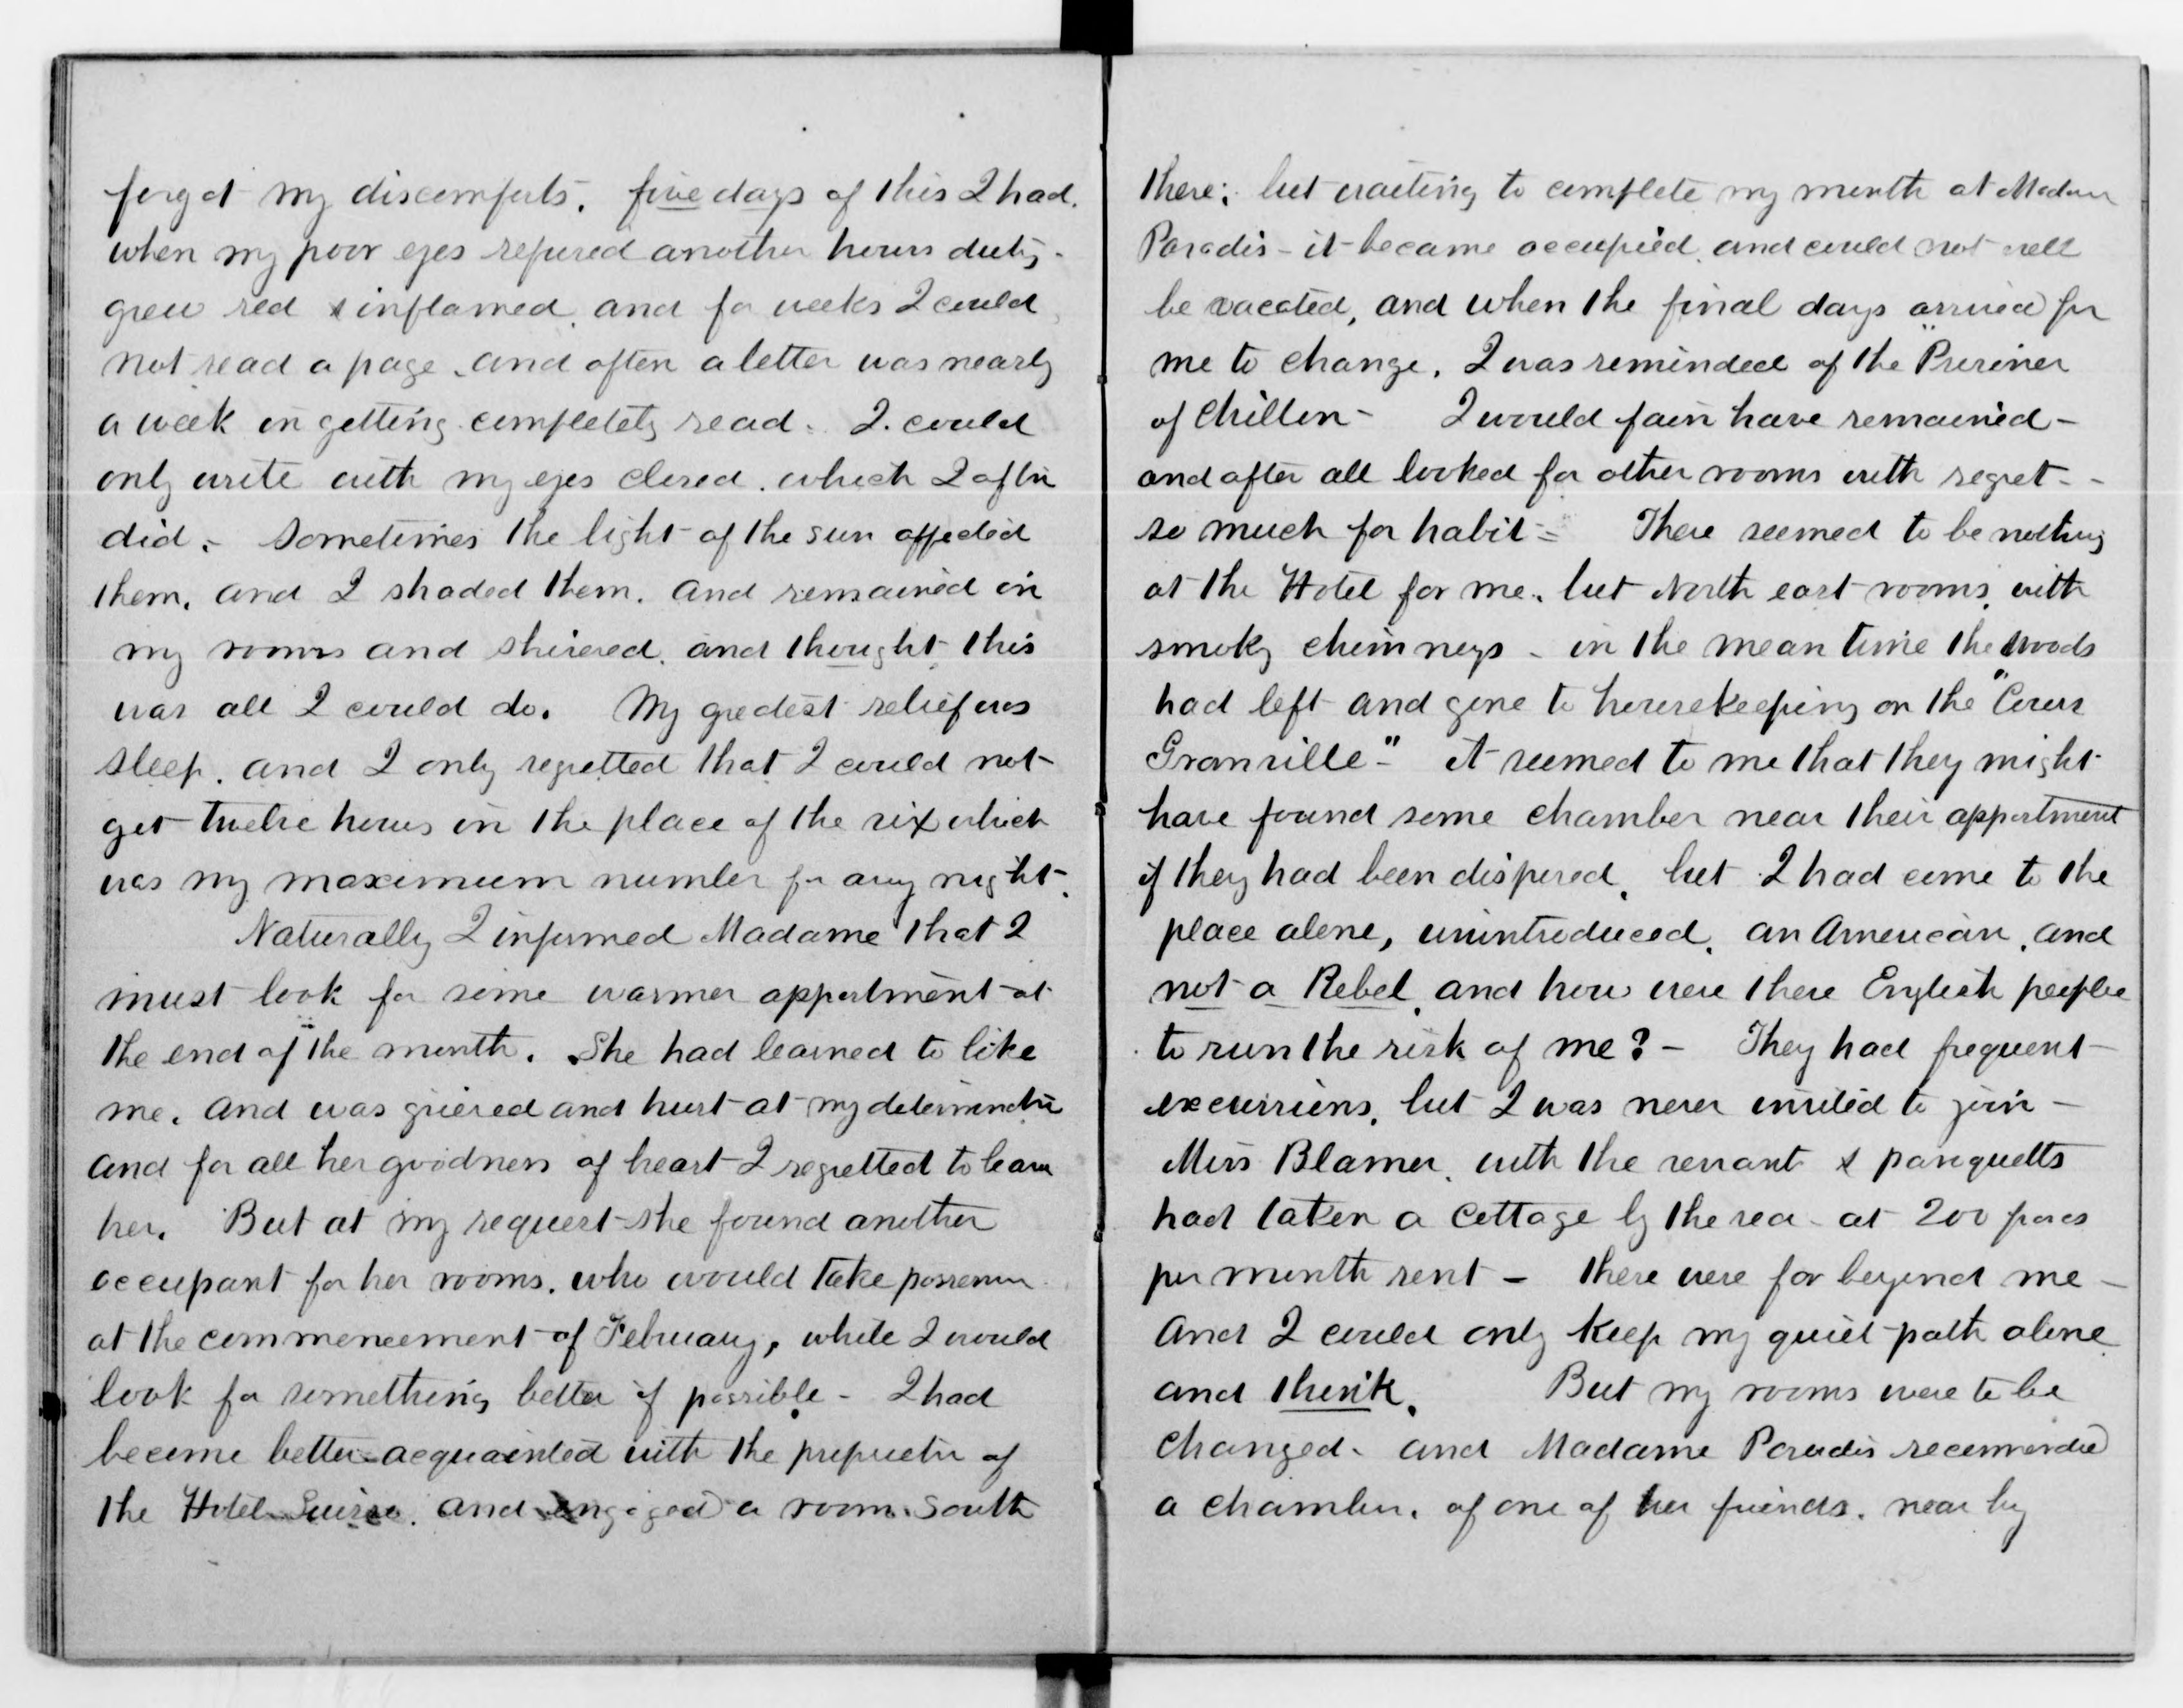 forgot my discomforts. five days of this I had.
when my poor eyes refused another hours duty -
grew red & inflamed, and for weeks I could
not read a page, and often a letter was nearly
a week in getting completely read. I could
only write with my eyes closed, which I often
did. - Sometimes the light of the sun affected
them, and I shaded them, and remained in
my rooms and shivered, and thought this
was all I could do. My greatest relief was
sleep, and I only regretted that I could not
get twelve hours in the place of the six which
was my maximum number for any night.
Naturally I informed Madame that I
must look for some warmer appartment at
the end of the month. She had learned to like
me, and was grieved and hurt at my determination
and for all her goodness of heart I regretted to leave
her. But at my request she found another
occupant for her rooms, who would take possession
at the commencement of February, while I would
look for something better if possible - I had
become better acquainted with the proprietor of
the Hotel Suisse, and engaged a room South
there; but waiting to complete my month at Madam
Paradis - it became occupied, and could not well
be vacated, and when the final days arrived for
me to change, I was reminded of the "Prisiner
of Chillon - I would fain have remained -
and after all looked for other rooms with regret - -
so much for habit = There seemed to be nothing
at the Hotel for me, but North east rooms, with
smoky chimneys - in the mean time the Woods
had left and gone to housekeeping on the "Cours
Granville" - it seemed to me that they might
have found some chamber near their appartment
if they had been disposed, but I had come to the
place alone, unintroduced, an American, and
not a Rebel, and how were these English people
to run the risk of me? - They had frequent
excursions, but I was never invited to join -
Miss Blamer, with the servant & paroquetts
had taken a cottage by the sea - at 200 francs
per month rent - these were far beyond me -
And I could only keep my quiet path alone
and think. But my rooms were to be
changed - and Madame Paradis recommended
a chamber, of one of her friends, near by